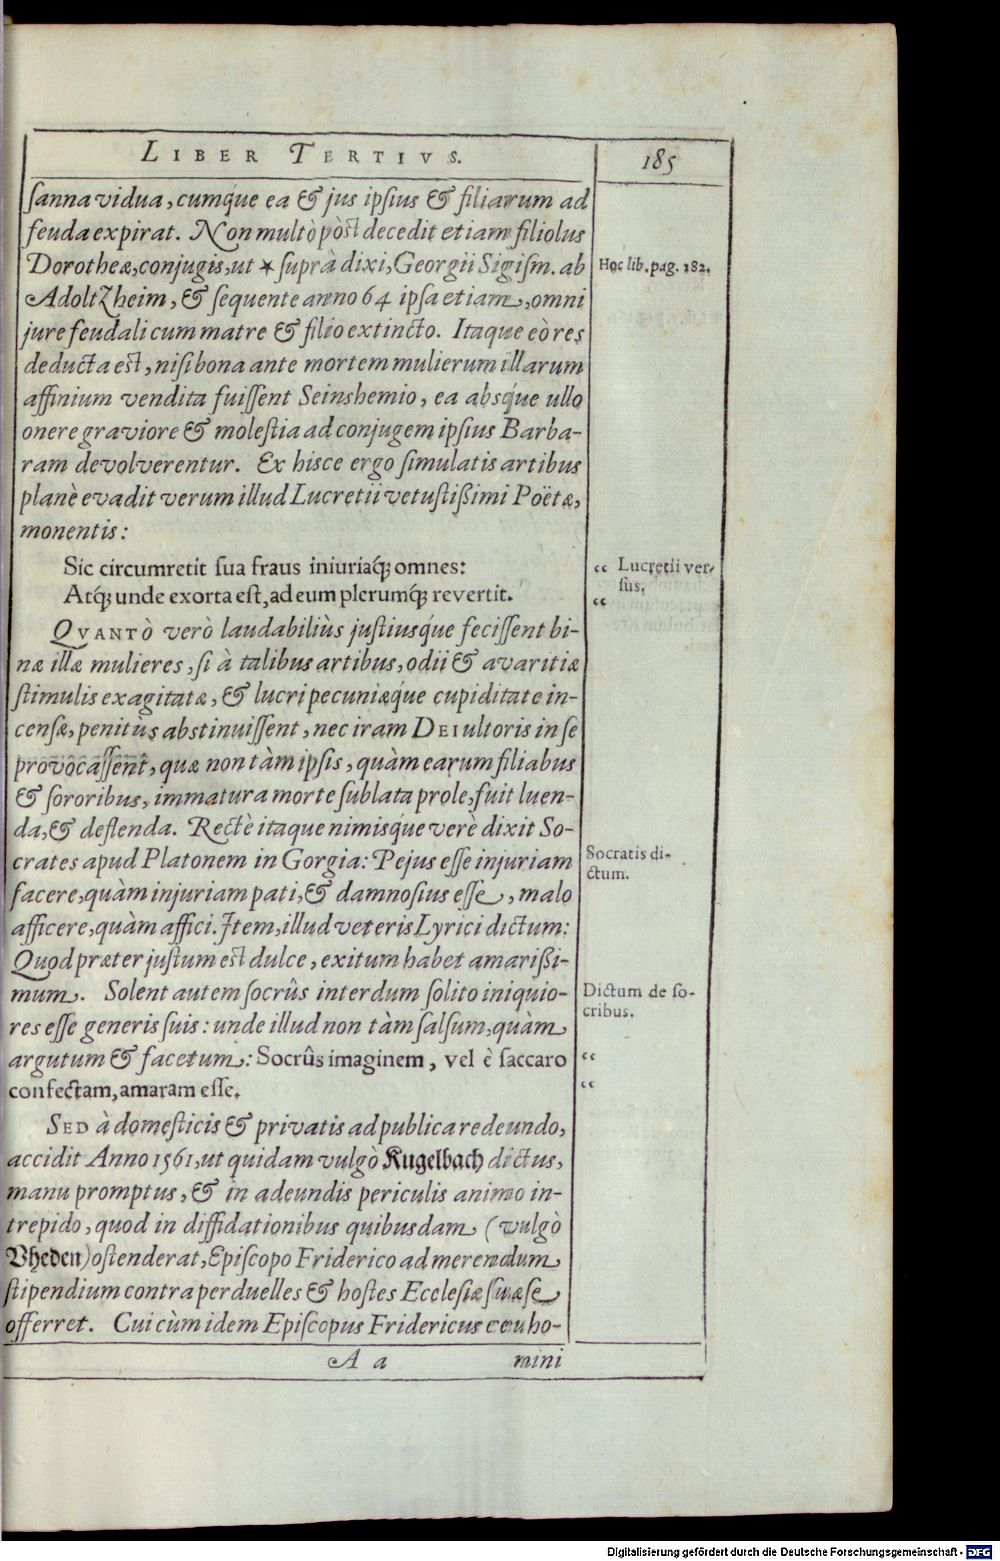 LIBER TERTIVS. 185
sanna vidua, cumq́ue ea & jus ipsius & filiarum ad
feuda expirat. Non multò pòst decedit etiam filiolus
Dorotheæ, conjugis, ut * suprà dixi, Georgii Sigism. ab
Hoc lib. pag. 182.
AdoltZheim, & sequente anno 64 ipsa etiam, omni
jure feudali cum matre & filio extincto. Itaque eò res
deducta est, nisi bona ante mortem mulierum illarum
affinium vendita fuissent Seinshemio, ea absq́ue ullo
onere graviore & molestia ad conjugem ipsius Barba-
ram devolverentur. Ex hisce ergo simulatis artibus
planè evadit verum illud Lucretii vetustißimi Poëtæ,
monentis:
Sic circumretit sua fraus iniuriaq́; omnes:
“ Lucretii ver-
sus.
Atq́; unde exorta est, ad eum plerumq́; revertit.
“
QVANTÒ verò laudabiliùs justiusq́ue fecissent bi-
næ illæ mulieres, si à talibus artibus, odii & avaritiæ
stimulis exagitatæ, & lucri pecuniæq́ue cupiditate in-
censæ, penitùs abstinuissent, nec iram DEI ultoris in se
provocassent, quæ non tàm ipsis, quàm earum filiabus
& sororibus, immatura morte sublata prole, fuit luen-
da, & deflenda. Rectè itaque nimisq́ue verè dixit So-
crates apud Platonem in Gorgia: Pejus esse injuriam
Socratis di-
ctum.
facere, quàm injuriam pati, & damnosius esse, malo
afficere, quàm affici. Item, illud veteris Lyrici dictum:
Quod præter justum est dulce, exitum habet amarißi-
mum. Solent autem socrûs interdum solito iniquio-
Dictum de so-
cribus.
res esse generis suis: unde illud non tàm salsum, quàm
argutum & facetum: Socrûs imaginem, vel è saccaro
“
confectam, amaram esse.
“
SED à domesticis & privatis ad publica redeundo,
accidit Anno 1561, ut quidam vulgò Kugelbach dictus,
manu promptus, & in adeundis periculis animo in-
trepido, quod in diffidationibus quibusdam (vulgò
Vheden) ostenderat, Episcopo Friderico ad merendum
stipendium contra perduelles & hostes Ecclesiæ suæ se
offerret. Cui cùm idem Episcopus Fridericus ceu ho-
A a mini
Digitalisierung gefördert durch die Deutsche Forschungsgemeinschaft - DFG